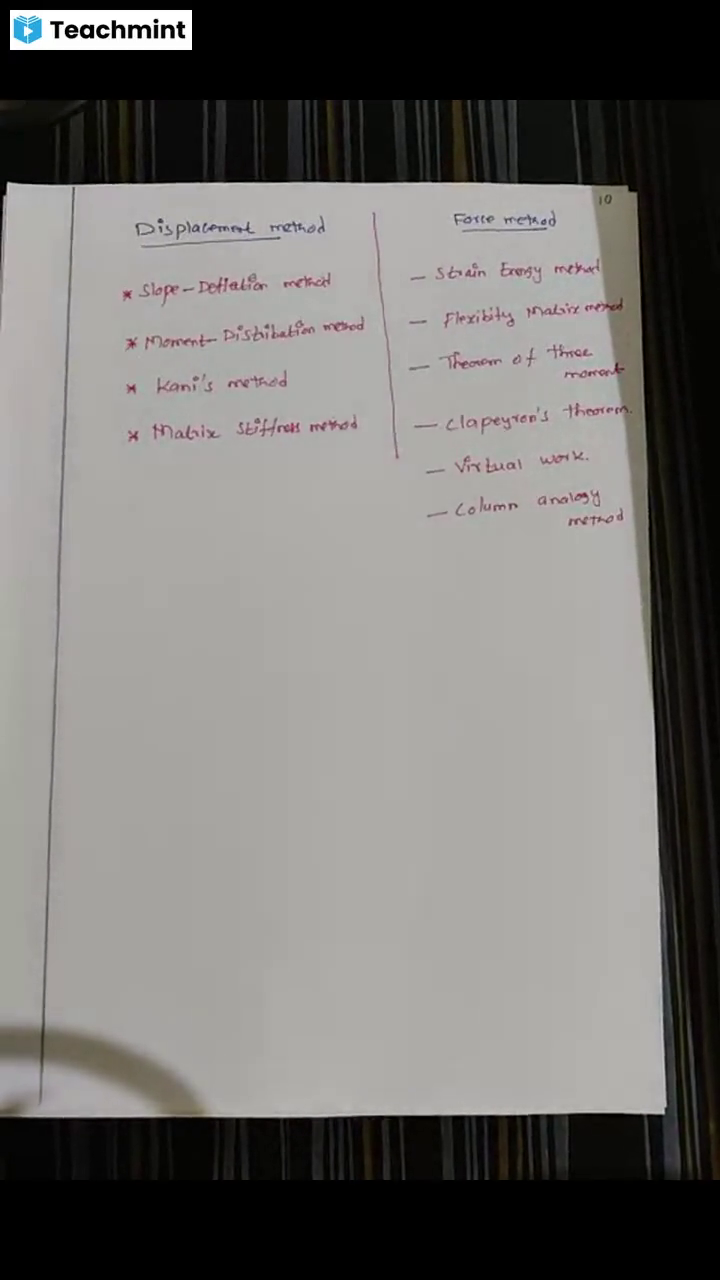 Teachmint
10
Displacement method
* Slope-Deflation method
* Moment-Distribation method
* Kani's method
* Matrix Stiffness method
Force method
— Strain Energy method
— Flexibity Matrix method
— Theorem of three
moment
— Clapeyron's theorem.
— Virtual work.
— Column analogy
method